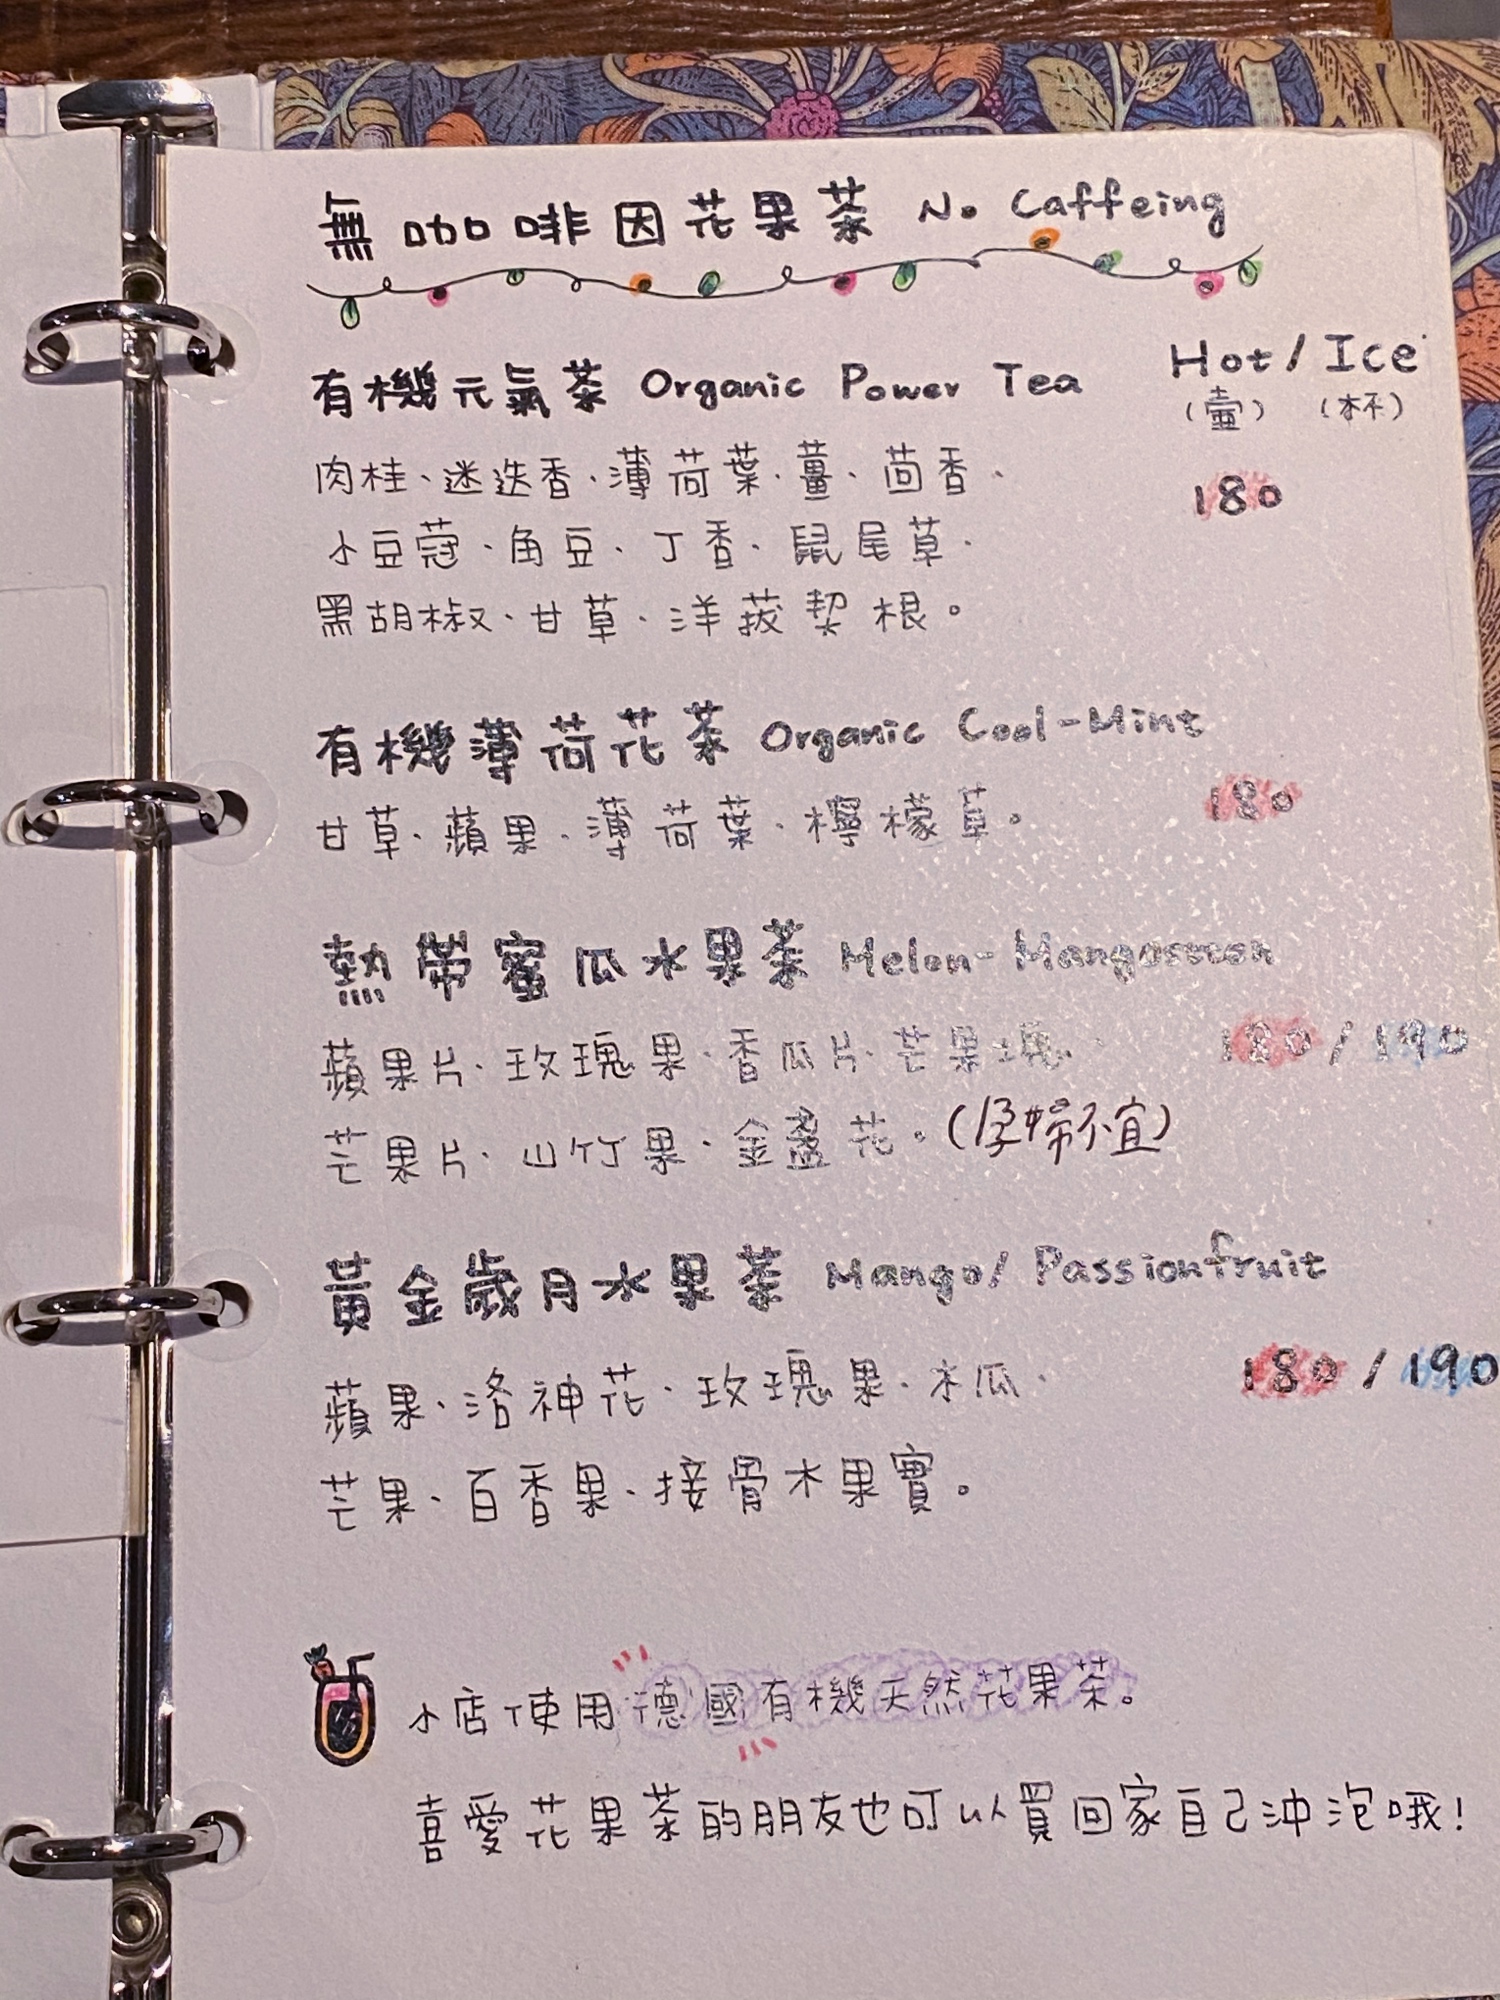 無咖啡因花果茶 No Caffeing
Hot / Ice
(壺) (杯)
有機元氣茶 Organic Power Tea
肉桂、迷迭香、薄荷葉、薑、茴香、
180
小豆蔻、角豆、丁香、鼠尾草、
黑胡椒、甘草、洋菝契根。
有機薄荷花茶 Organic Cool-Mint
甘草、蘋果、薄荷葉、檸檬草。
180
熱帶蜜瓜水果茶 Melon-Mangosteen
蘋果片、玫瑰果、香瓜片、芒果塊、
180/190
芒果片、山竹果、金盞花。(孕婦不宜)
黃金歲月水果茶 Mango/ Passionfruit
蘋果、洛神花、玫瑰果、木瓜、
180/190
芒果、百香果、接骨木果實。
小店使用德國有機天然花果茶。
喜愛花果茶的朋友也可以買回家自己沖泡哦!